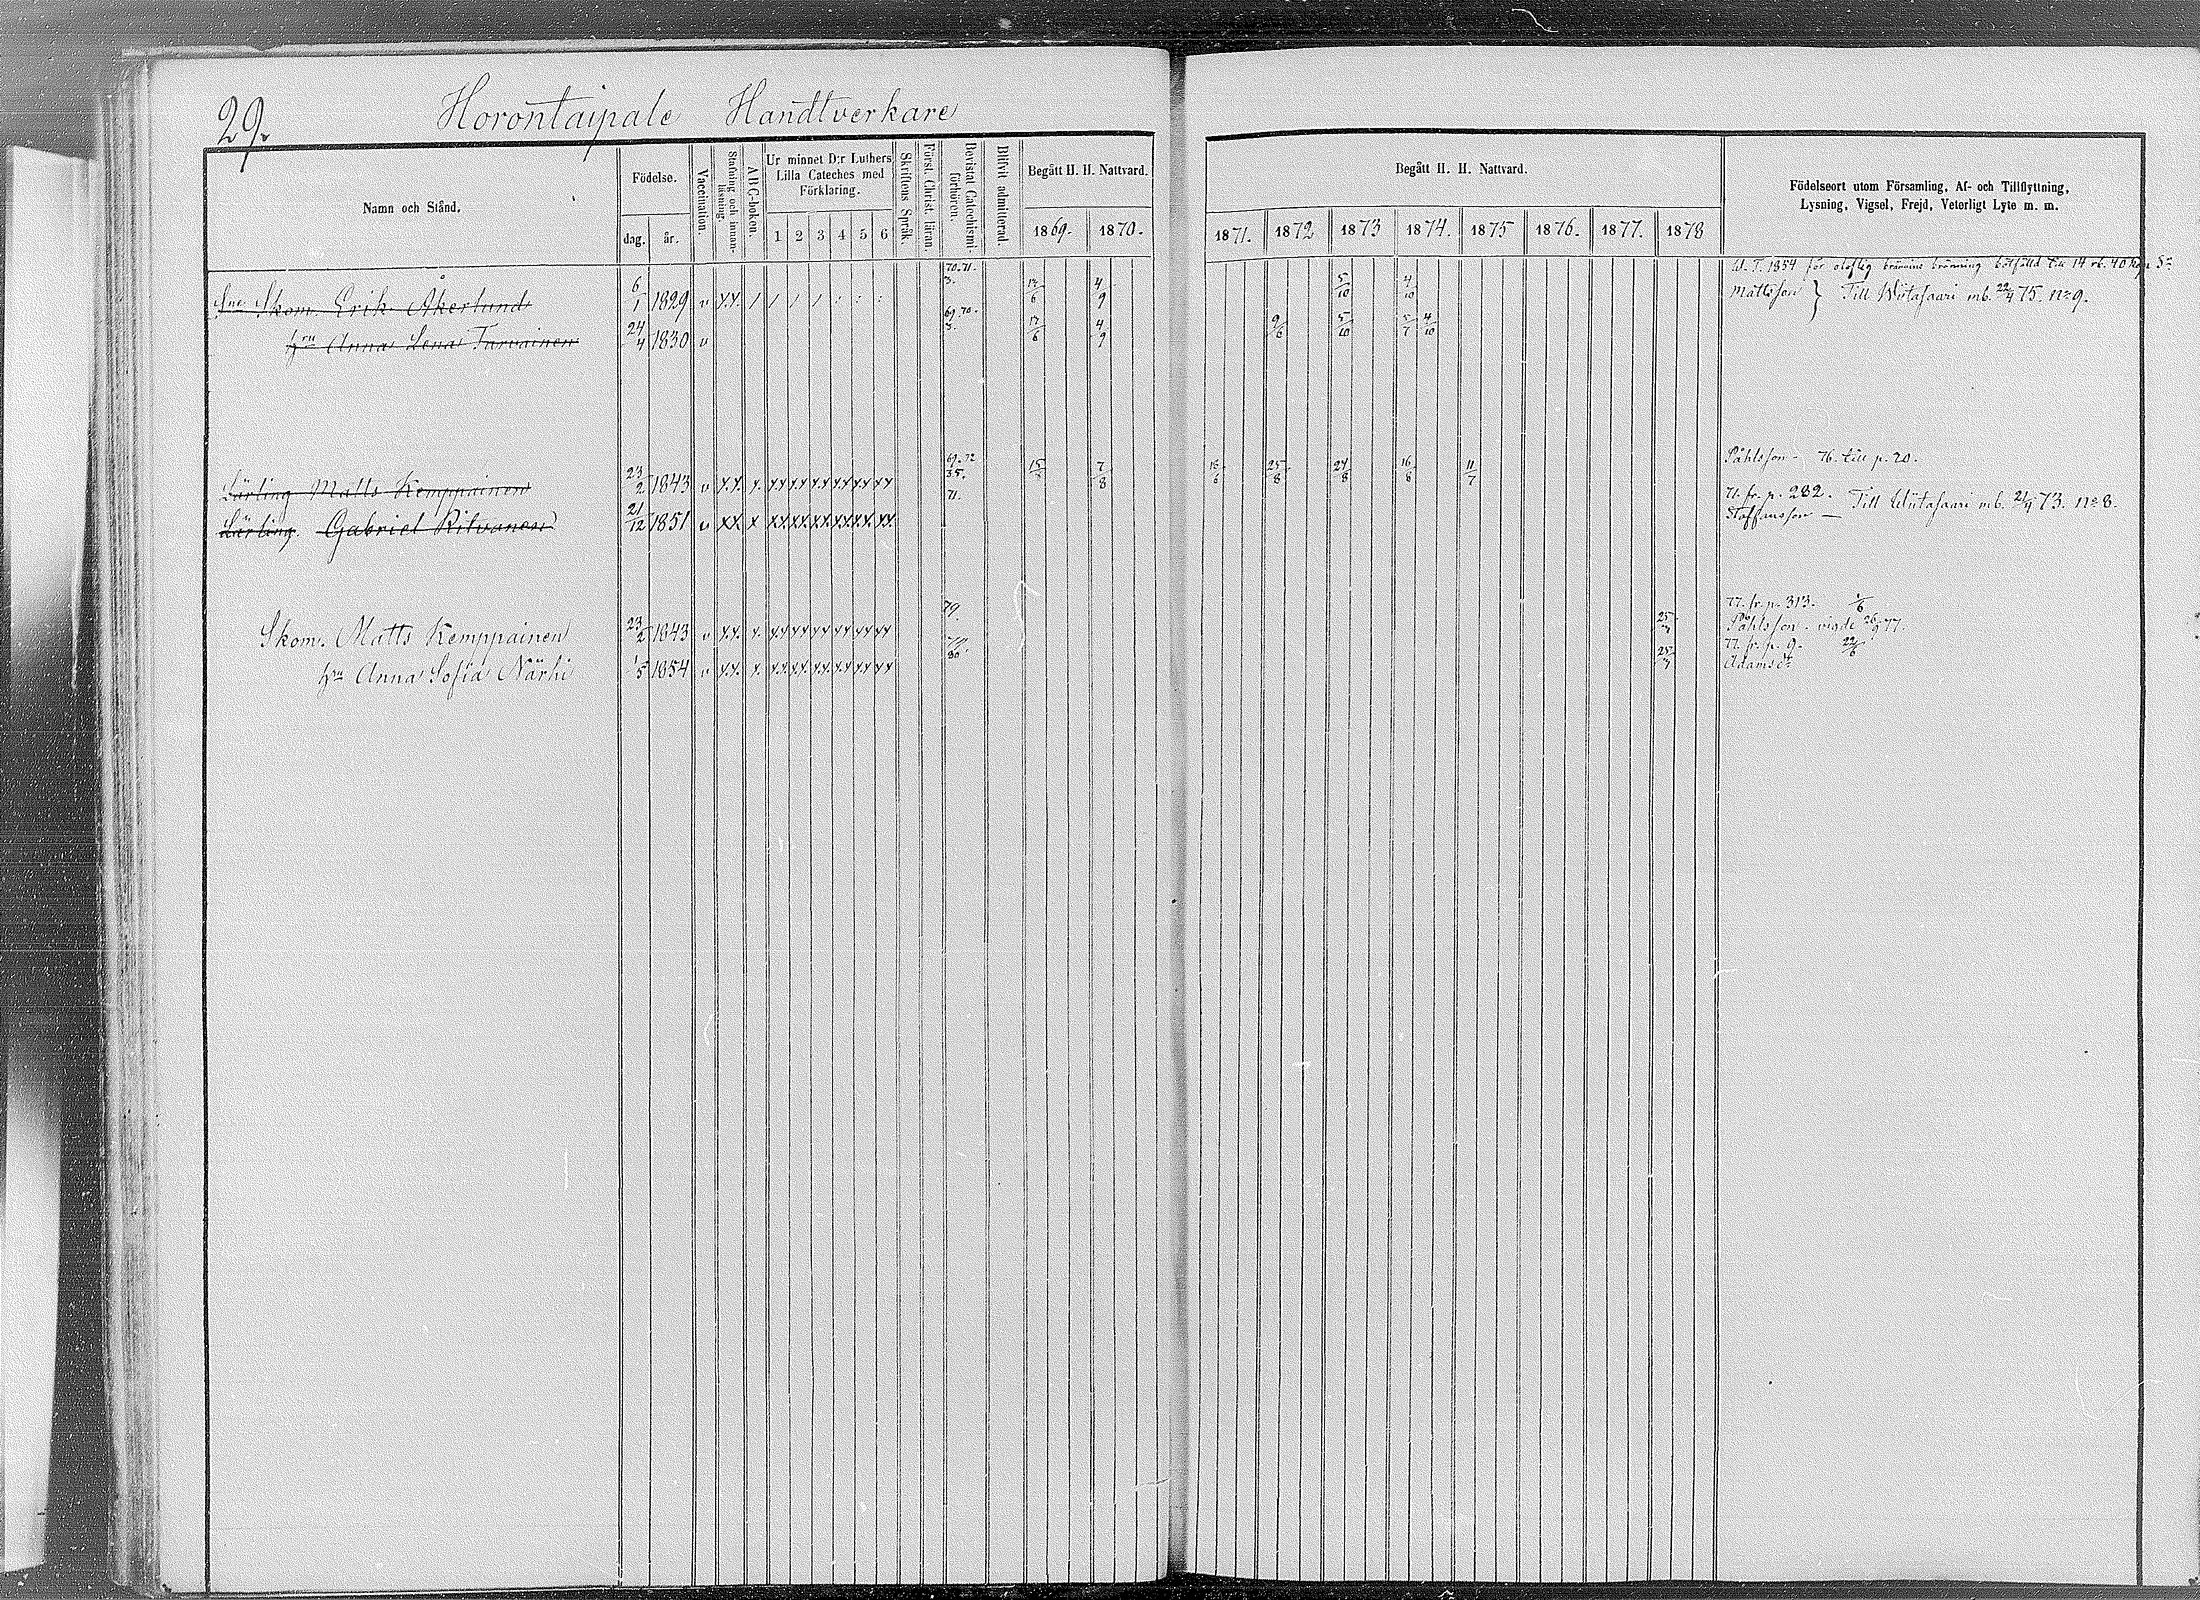 29.
Horontaipale Handtverkare
Namn och Stånd.
Födelse.
dag. år.
Vaccination.
Stafning och innan-läsning.
ABC-boken.
Ur minnet D:r Luthers
Lilla Cateches med
Förklaring.
1 2 3 4 5 6
Skriftens Språk.
Först. Christ. läran.
Bevistat Catechismi-förhören.
Blifvit admitterad.
Begått H. H. Nattvard.
1869. 1870.
Begått H. H. Nattvard.
1871. 1872 1873 1874. 1875 1876. 1877. 1878
Födelseort utom Församling, Af- och Tillflyttning,
Lysning, Vigsel, Frejd, Veterligt Lyte m. m.
Skom. Erik Åkerlund 6/1 1829 v x.x. 70.71. 3. 4/9 5/10 4/10
W. T. 1854 för oloflig bränvins bränning bötfälld till 14 rb. 40 kop Sr
Mattsson } Till Wiitasaari mb. 22/4 75. No 9.
hru Anna Lena Tarvainen 24/4 1830 v 69.70. 3. 4/9 9/6 5/10 5/7 4/10
Lärling Matts Kemppainen 23/2 1843 v x.x. x. xx xx xx xx xx xx 69.72 35. 7/8 16/6 25/8 24/8 16/8 11/7
Påhlsson - 76. till p. 20.
Lärling. Gabriel Ritvanen 21/12 1851 v xx x xx xx xx xx xx xx. 71.
71. fr. p. 282.
Staffansson — Till Wiitasaari mb. 21/4 73. No 8.
Skom. Matts Kemppainen 23/2 1843 v x.x. x. xx xx xx xx xx xx 79. 25/7
77. fr. p. 313. 1/6
Påhlsson. vigde 26/9 77.
hru Anna Sofia Närhi 1/5 1854 v xx. x. xx xx xx xx xx xx 80. 25/7
77. fr. p. 9. 22/6
Adamsdr